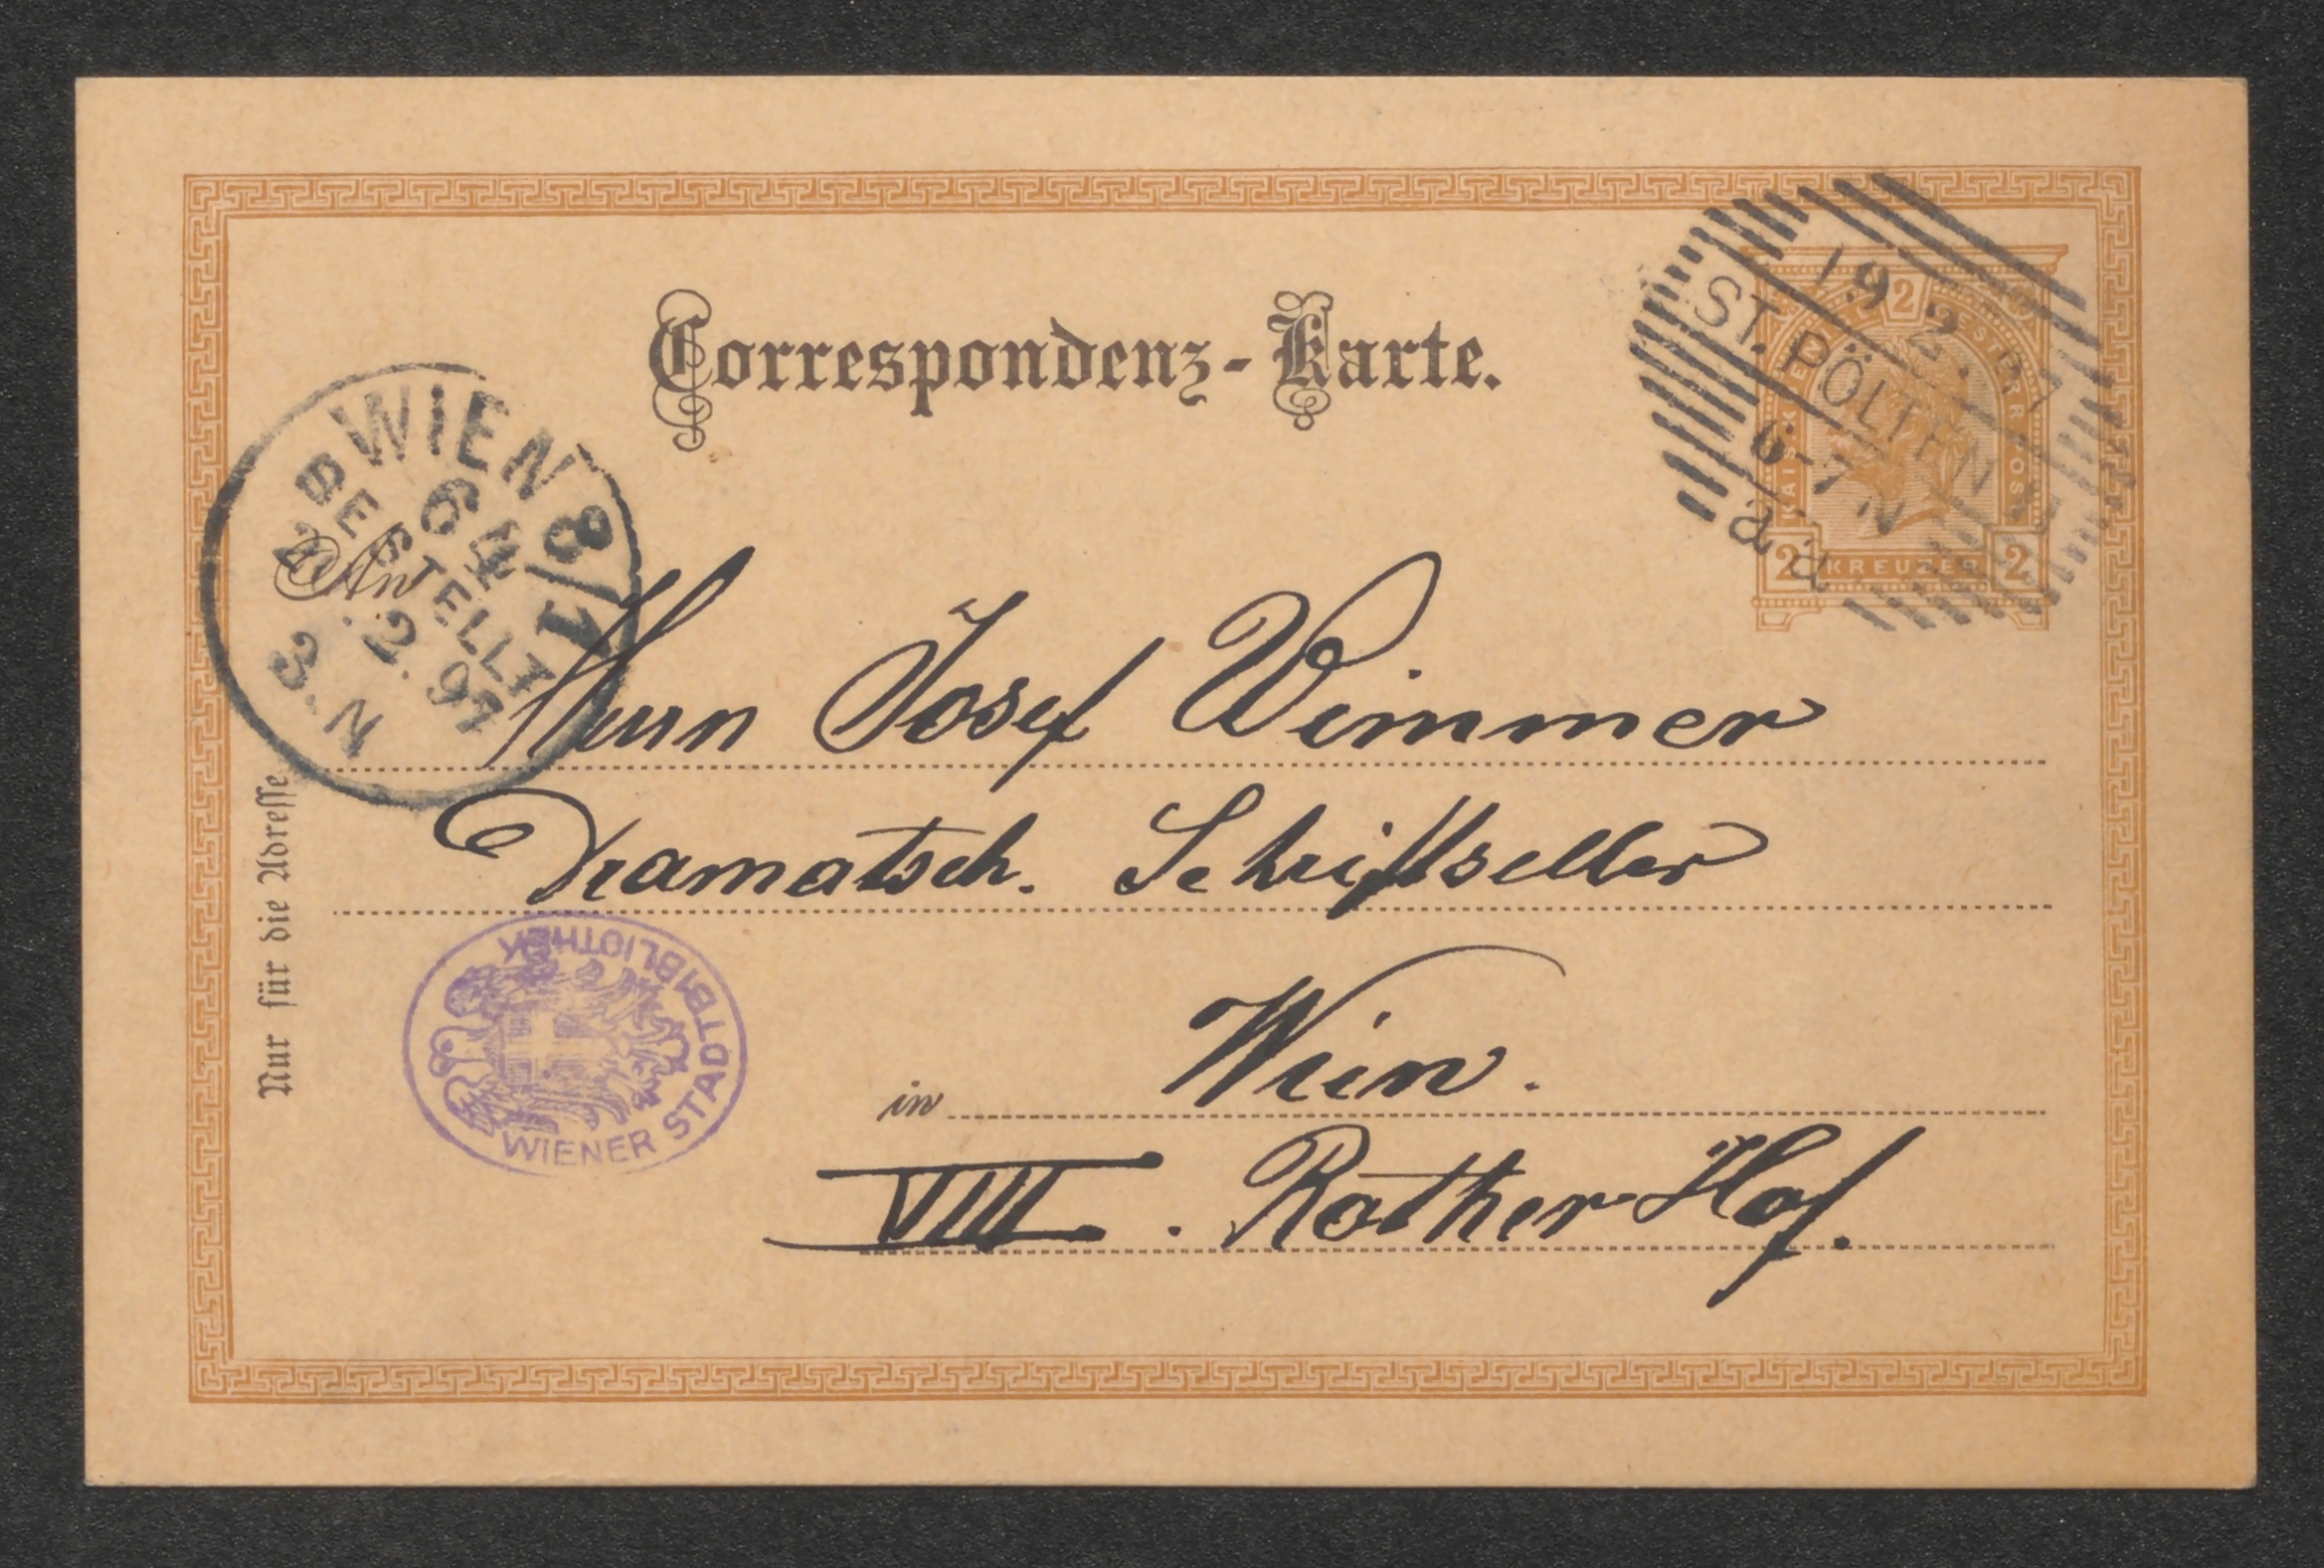 Correspondenz-Karte.
19 2. 97
ST. PÖLTEN
6-7 N
a a
2
KREUZER
2 2
WIEN 8/1
BESTELLT
2. 97
3. N
An
Herrn Josef Wimmer
Dramatsch. Schriftseller
in Wien.
VIII. Rother Hof.
Nur für die Adresse
WIENER STADTBIBLIOTHEK